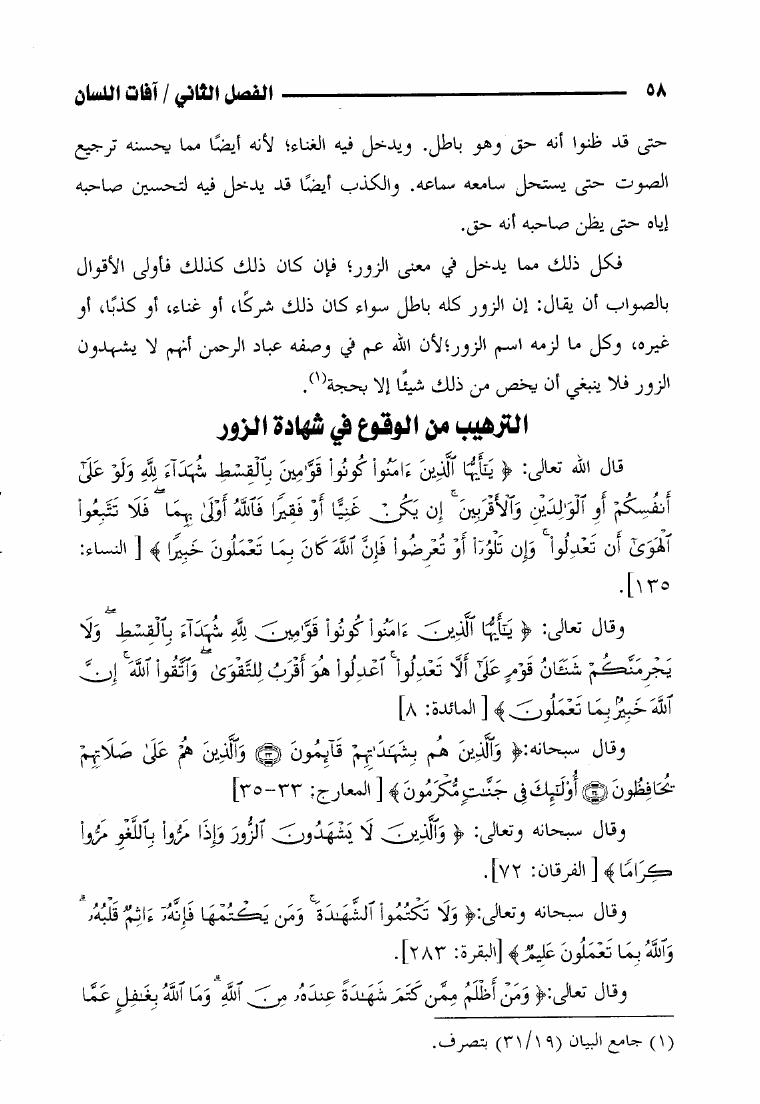 ٥٨ الفصل الثاني / آفات اللسان
حتى قد ظنوا أنه حق وهو باطل. ويدخل فيه الغناء؛ لأنه أيضًا مما يحسنه ترجيع
الصوت حتى يستحل سامعه سماعه. والكذب أيضًا قد يدخل فيه لتحسين صاحبه
إياه حتى يظن صاحبه أنه حق.
فكل ذلك مما يدخل في معنى الزور؛ فإن كان ذلك كذلك فأولى الأقوال
بالصواب أن يقال: إن الزور كله باطل سواء كان ذلك شركًا، أو غناء، أو كذبًا، أو
غيره، وكل ما لزمه اسم الزور؛لأن الله عم في وصفه عباد الرحمن أنهم لا يشهدون
الزور فلا ينبغي أن يخص من ذلك شيئًا إلا بحجة(١).
الترهيب من الوقوع في شهادة الزور
قال الله تعالى: ﴿ يَٰٓأَيُّهَا ٱلَّذِينَ ءَامَنُوا۟ كُونُوا۟ قَوَّٰمِينَ بِٱلْقِسْطِ شُهَدَآءَ لِلَّهِ وَلَوْ عَلَىٰٓ
أَنفُسِكُمْ أَوِ ٱلْوَٰلِدَيْنِ وَٱلْأَقْرَبِينَ ۚ إِن يَكُنْ غَنِيًّا أَوْ فَقِيرًا فَٱللَّهُ أَوْلَىٰ بِهِمَا ۖ فَلَا تَتَّبِعُوا۟
ٱلْهَوَىٰٓ أَن تَعْدِلُوا۟ ۚ وَإِن تَلْوُۥٓا۟ أَوْ تُعْرِضُوا۟ فَإِنَّ ٱللَّهَ كَانَ بِمَا تَعْمَلُونَ خَبِيرًا ﴾ [ النساء:
١٣٥].
وقال تعالى: ﴿ يَٰٓأَيُّهَا ٱلَّذِينَ ءَامَنُوا۟ كُونُوا۟ قَوَّٰمِينَ لِلَّهِ شُهَدَآءَ بِٱلْقِسْطِ ۖ وَلَا
يَجْرِمَنَّكُمْ شَنَـَٔانُ قَوْمٍ عَلَىٰٓ أَلَّا تَعْدِلُوا۟ ۚ ٱعْدِلُوا۟ هُوَ أَقْرَبُ لِلتَّقْوَىٰ ۖ وَٱتَّقُوا۟ ٱللَّهَ ۚ إِنَّ
ٱللَّهَ خَبِيرٌۢ بِمَا تَعْمَلُونَ ﴾ [ المائدة: ٨]
وقال سبحانه:﴿ وَٱلَّذِينَ هُم بِشَهَٰدَٰتِهِمْ قَآئِمُونَ ٣٣ وَٱلَّذِينَ هُمْ عَلَىٰ صَلَاتِهِمْ
يُحَافِظُونَ ٣٤ أُو۟لَٰٓئِكَ فِى جَنَّٰتٍ مُّكْرَمُونَ ﴾ [ المعارج: ٣٣-٣٥]
وقال سبحانه وتعالى: ﴿ وَٱلَّذِينَ لَا يَشْهَدُونَ ٱلزُّورَ وَإِذَا مَرُّوا۟ بِٱللَّغْوِ مَرُّوا۟
كِرَامًا ﴾ [ الفرقان: ٧٢].
وقال سبحانه وتعالى:﴿ وَلَا تَكْتُمُوا۟ ٱلشَّهَٰدَةَ ۚ وَمَن يَكْتُمْهَا فَإِنَّهُۥٓ ءَاثِمٌ قَلْبُهُۥ ۗ
وَٱللَّهُ بِمَا تَعْمَلُونَ عَلِيمٌ ﴾ [البقرة: ٢٨٣].
وقال تعالى:﴿ وَمَنْ أَظْلَمُ مِمَّن كَتَمَ شَهَٰدَةً عِندَهُۥ مِنَ ٱللَّهِ ۗ وَمَا ٱللَّهُ بِغَٰفِلٍ عَمَّا
(١) جامع البيان (٣١/١٩) بتصرف.